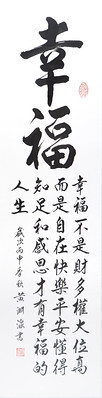 幸福
幸福不是財多權大位高
而是自在快樂平安懂得
知足和感恩才有幸福的
人生
歲次丙申
書